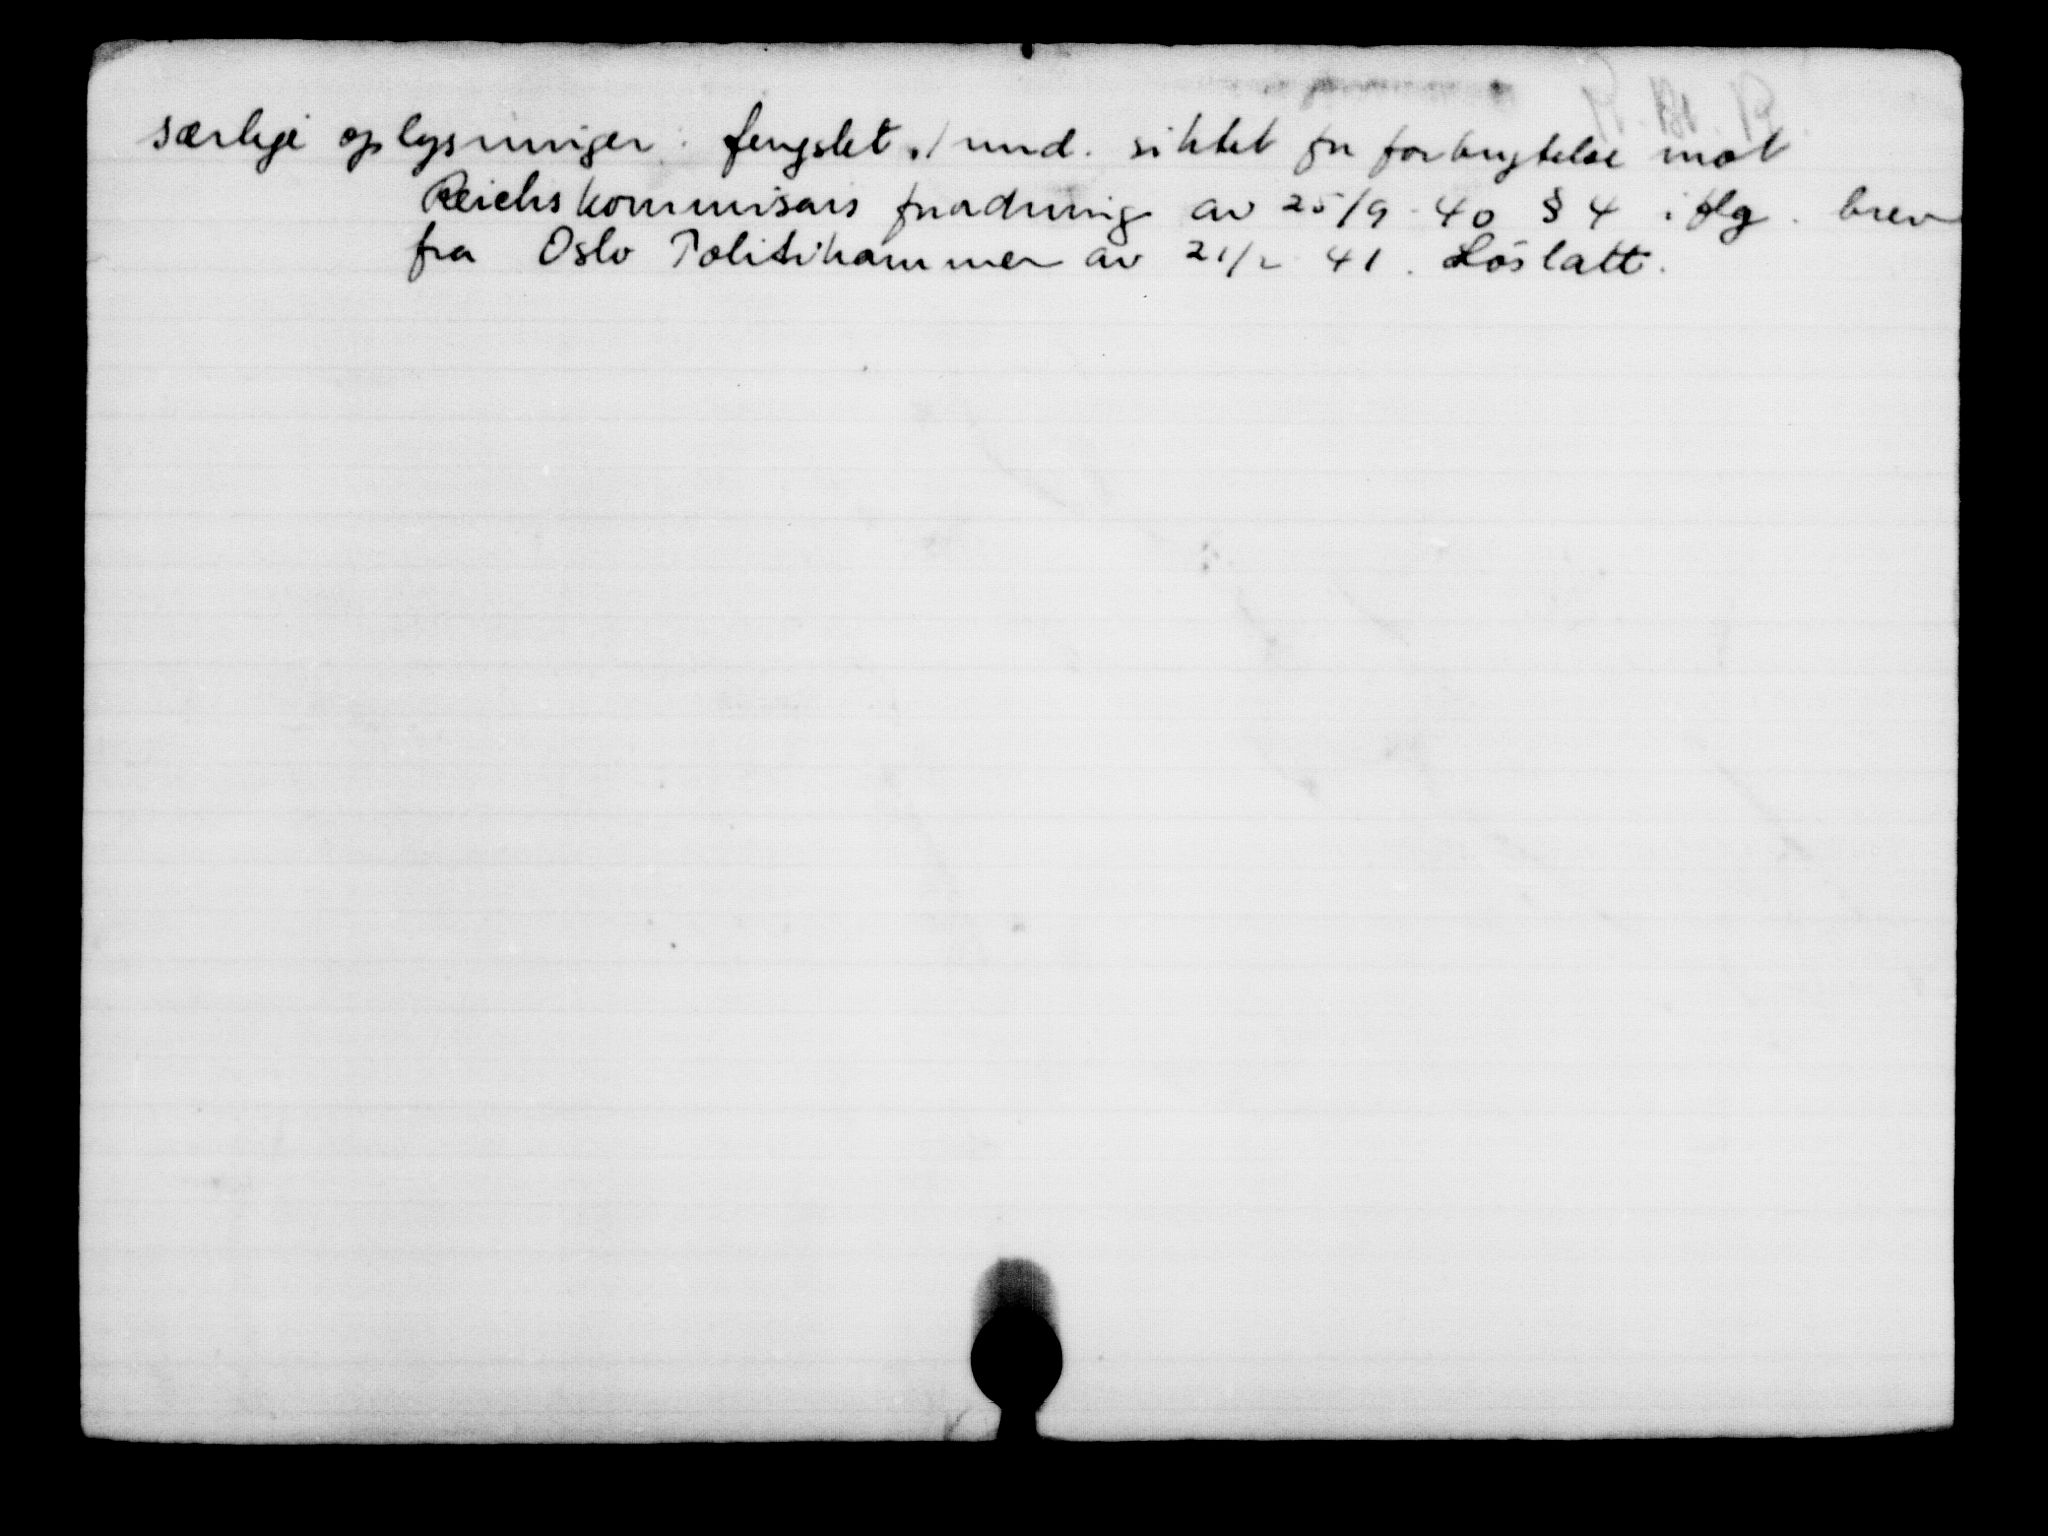 særlige oplysninger: fengslet, / und. siktet for forbrytelse mot
Reichskommisars forordning av 25/9-40 § 4 iflg. brev
fra Oslo Politikammer av 21/2 41. Löslatt.